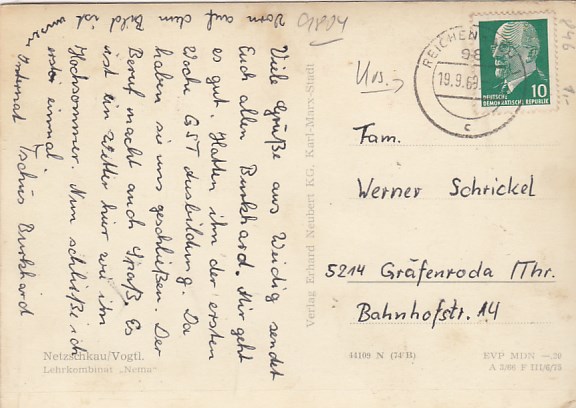 Viele Grüße aus Weidig sendet
Euch allen Burkhard. Mir geht
es gut. Hatten ihn der ersten
Woche GST Ausbildung. Da
haben sie uns geschliffen. Der
Beruf macht auch Spaß. Es
ist ein Wetter hier wie ihn
Hochsommer. Nun schließe ich
erstei einmal.
Tschüs Burkhard
Vorn auf dem Bild ist
unser Internat
Netzschkau/Vogtl.
Lehrkombinat „Nema"
Verlag Erhard Neubert KG, Karl-Marx-Stadt
REICHEN
98
19.9.69
c
DEUTSCHE
DEMOKRATISCHE REPUBLIK
10
Fam.
Werner Schrickel
5214 Gräfenroda /Thr.
Bahnhofstr. 14
44109 N (74 B)
EVP MDN —.20
A 2/68 F III/6/75